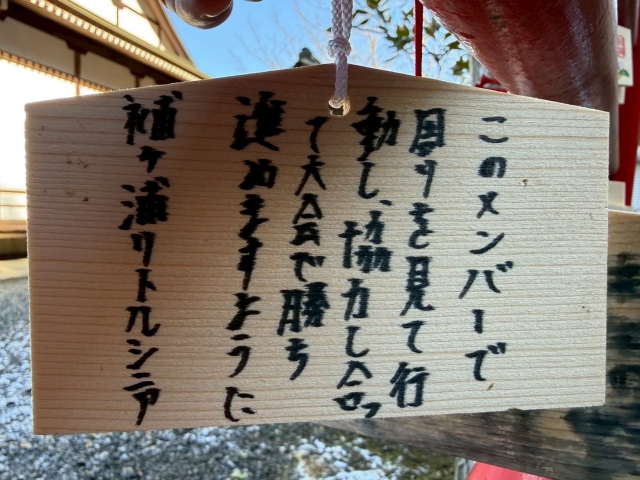 このメンバーで
周りを見て行
動し、協力し合っ
て大会で勝ち
進めますように
袖ケ浦リトルシニア